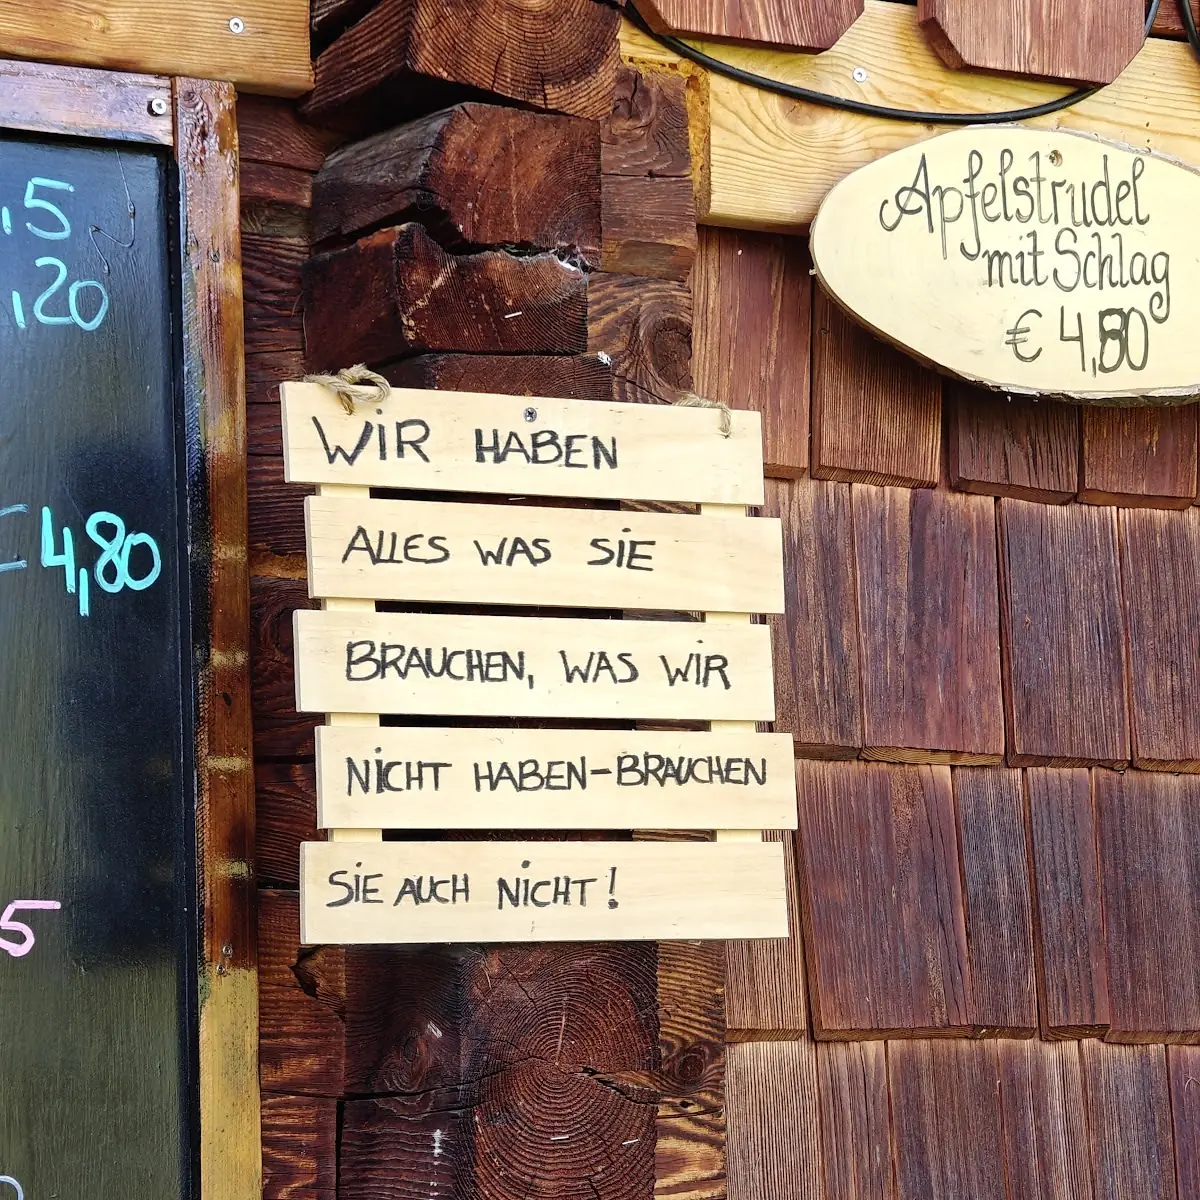 ,5
,20
4,80
5
Apfelstrudel
mit Schlag
€ 4,80
WIR HABEN
ALLES WAS SIE
BRAUCHEN, WAS WIR
NICHT HABEN-BRAUCHEN
SIE AUCH NICHT!